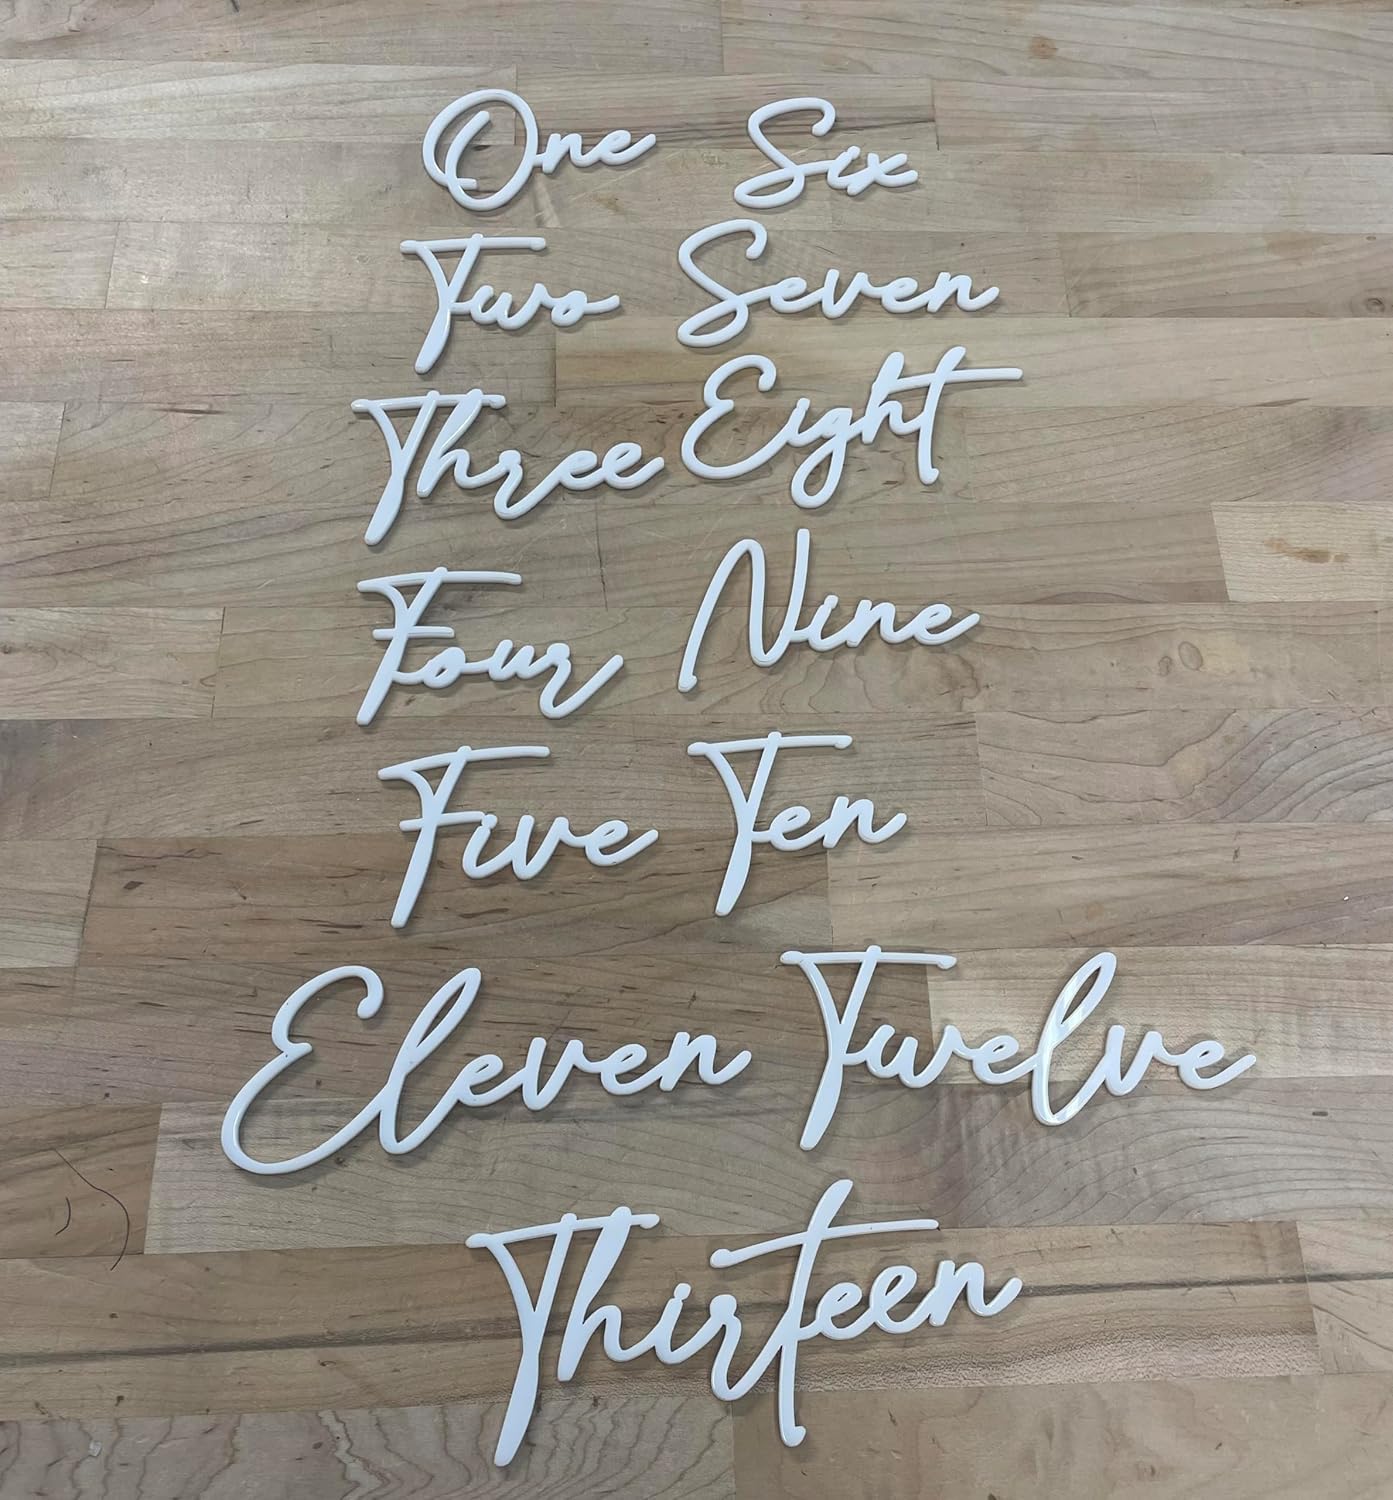 One Six
Two Seven
Three Eight
Four Nine
Five Ten
Eleven Twelve
Thirteen